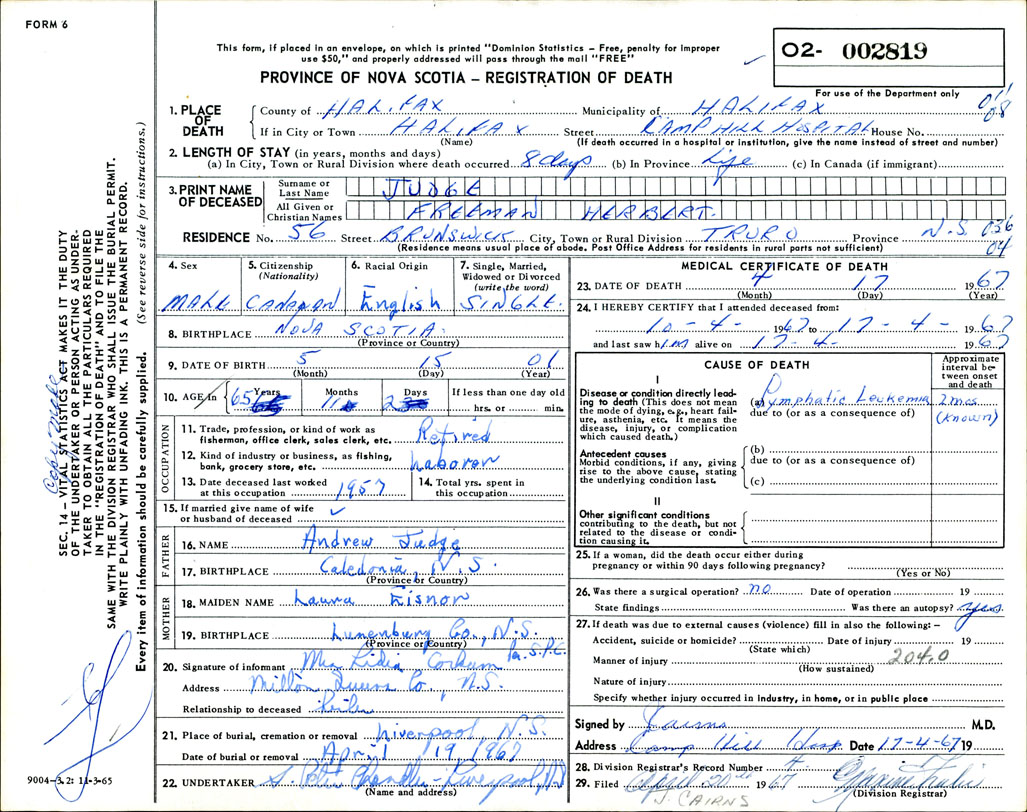 FORM 6
This form, if placed in an envelope, on which is printed "Dominion Statistics – Free, penalty for improper
use $50," and properly addressed will pass through the mail "FREE"
PROVINCE OF NOVA SCOTIA – REGISTRATION OF DEATH
O2- 002819
For use of the Department only
1. PLACE OF DEATH
County of HALIFAX Municipality of HALIFAX
08
If in City or Town HALIFAX Street CAMP HILL HOSPITAL House No.
(Name) (If death occurred in a hospital or institution, give the name instead of street and number)
2. LENGTH OF STAY (in years, months and days)
(a) In City, Town or Rural Division where death occurred 8 days (b) In Province Life (c) In Canada (if immigrant)
3. PRINT NAME OF DECEASED
Surname or Last Name JUDGE
All Given or Christian Names FREEMAN HERBERT.
RESIDENCE No. 56 Street BRUNSWICK City, Town or Rural Division TRURO Province N.S. 036
04
(Residence means usual place of abode. Post Office Address for residents in rural parts not sufficient)
4. Sex
MALE
5. Citizenship
(Nationality)
CANADIAN
6. Racial Origin
English
7. Single, Married,
Widowed or Divorced
(write the word)
SINGLE.
8. BIRTHPLACE NOVA SCOTIA.
(Province or Country)
9. DATE OF BIRTH 5 15 01
(Month) (Day) (Year)
10. AGE 65 Years 11 Months 2 Days If less than one day old
hrs. or min.
OCCUPATION
11. Trade, profession, or kind of work as
fisherman, office clerk, sales clerk, etc. Retired
12. Kind of industry or business, as fishing,
bank, grocery store, etc. Laborer
13. Date deceased last worked
at this occupation 1957
14. Total yrs. spent in
this occupation
15. If married give name of wife
or husband of deceased
FATHER
16. NAME Andrew Judge
17. BIRTHPLACE Caledonia, N.S.
(Province or Country)
MOTHER
18. MAIDEN NAME Laura Eisnor
19. BIRTHPLACE Lunenburg Co., N.S.
(Province or Country)
20. Signature of informant Mrs Lidia Corkum
Address Milton Queens Co., N.S.
Relationship to deceased
21. Place of burial, cremation or removal Liverpool, N.S.
Date of burial or removal April 19, 1967
22. UNDERTAKER Chandler - Liverpool, N.S.
(Name and address)
MEDICAL CERTIFICATE OF DEATH
23. DATE OF DEATH 4 17 1967
(Month) (Day) (Year)
24. I HEREBY CERTIFY that I attended deceased from:
10-4- 1967 to 17-4- 1967
and last saw him alive on 17-4- 1967
CAUSE OF DEATH
Approximate interval between onset and death
I
Disease or condition directly leading to death (This does not mean
the mode of dying, e.g., heart failure, asthenia, etc. It means the
disease, injury, or complication
which caused death.)
(a) Lymphatic Leukemia 2 mos.
due to (or as a consequence of) (known)
Antecedent causes
Morbid conditions, if any, giving
rise to the above cause, stating
the underlying condition last.
(b)
due to (or as a consequence of)
(c)
II
Other significant conditions
contributing to the death, but not
related to the disease or condition causing it.
25. If a woman, did the death occur either during
pregnancy or within 90 days following pregnancy?
(Yes or No)
26. Was there a surgical operation? no Date of operation 19
State findings Was there an autopsy? yes
27. If death was due to external causes (violence) fill in also the following: –
Accident, suicide or homicide? Date of injury 19
(State which)
Manner of injury 204.0
(How sustained)
Nature of injury
Specify whether injury occurred in industry, in home, or in public place
Signed by Cairns M.D.
Address Camp Hill Hosp Date 17-4-67 19
28. Division Registrar's Record Number
29. Filed April 20th 1967
(Division Registrar)
J. CAIRNS
SEC. 14 – VITAL STATISTICS ACT MAKES IT THE DUTY
OF THE UNDERTAKER OR PERSON ACTING AS UNDERTAKER TO OBTAIN ALL THE PARTICULARS REQUIRED
IN THE "REGISTRATION OF DEATH" AND TO FILE THE
SAME WITH THE DIVISION REGISTRAR WHO SHALL ISSUE THE BURIAL PERMIT.
WRITE PLAINLY WITH UNFADING INK. THIS IS A PERMANENT RECORD.
Every item of information should be carefully supplied. (See reverse side for instructions.)
9004-3.2: 11-3-65